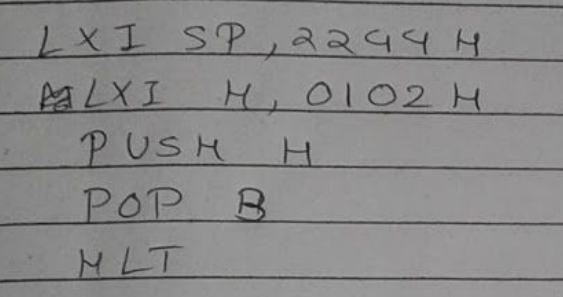 LXI SP, 2244 H
LXI H, 0102 H
PUSH H
POP B
HLT